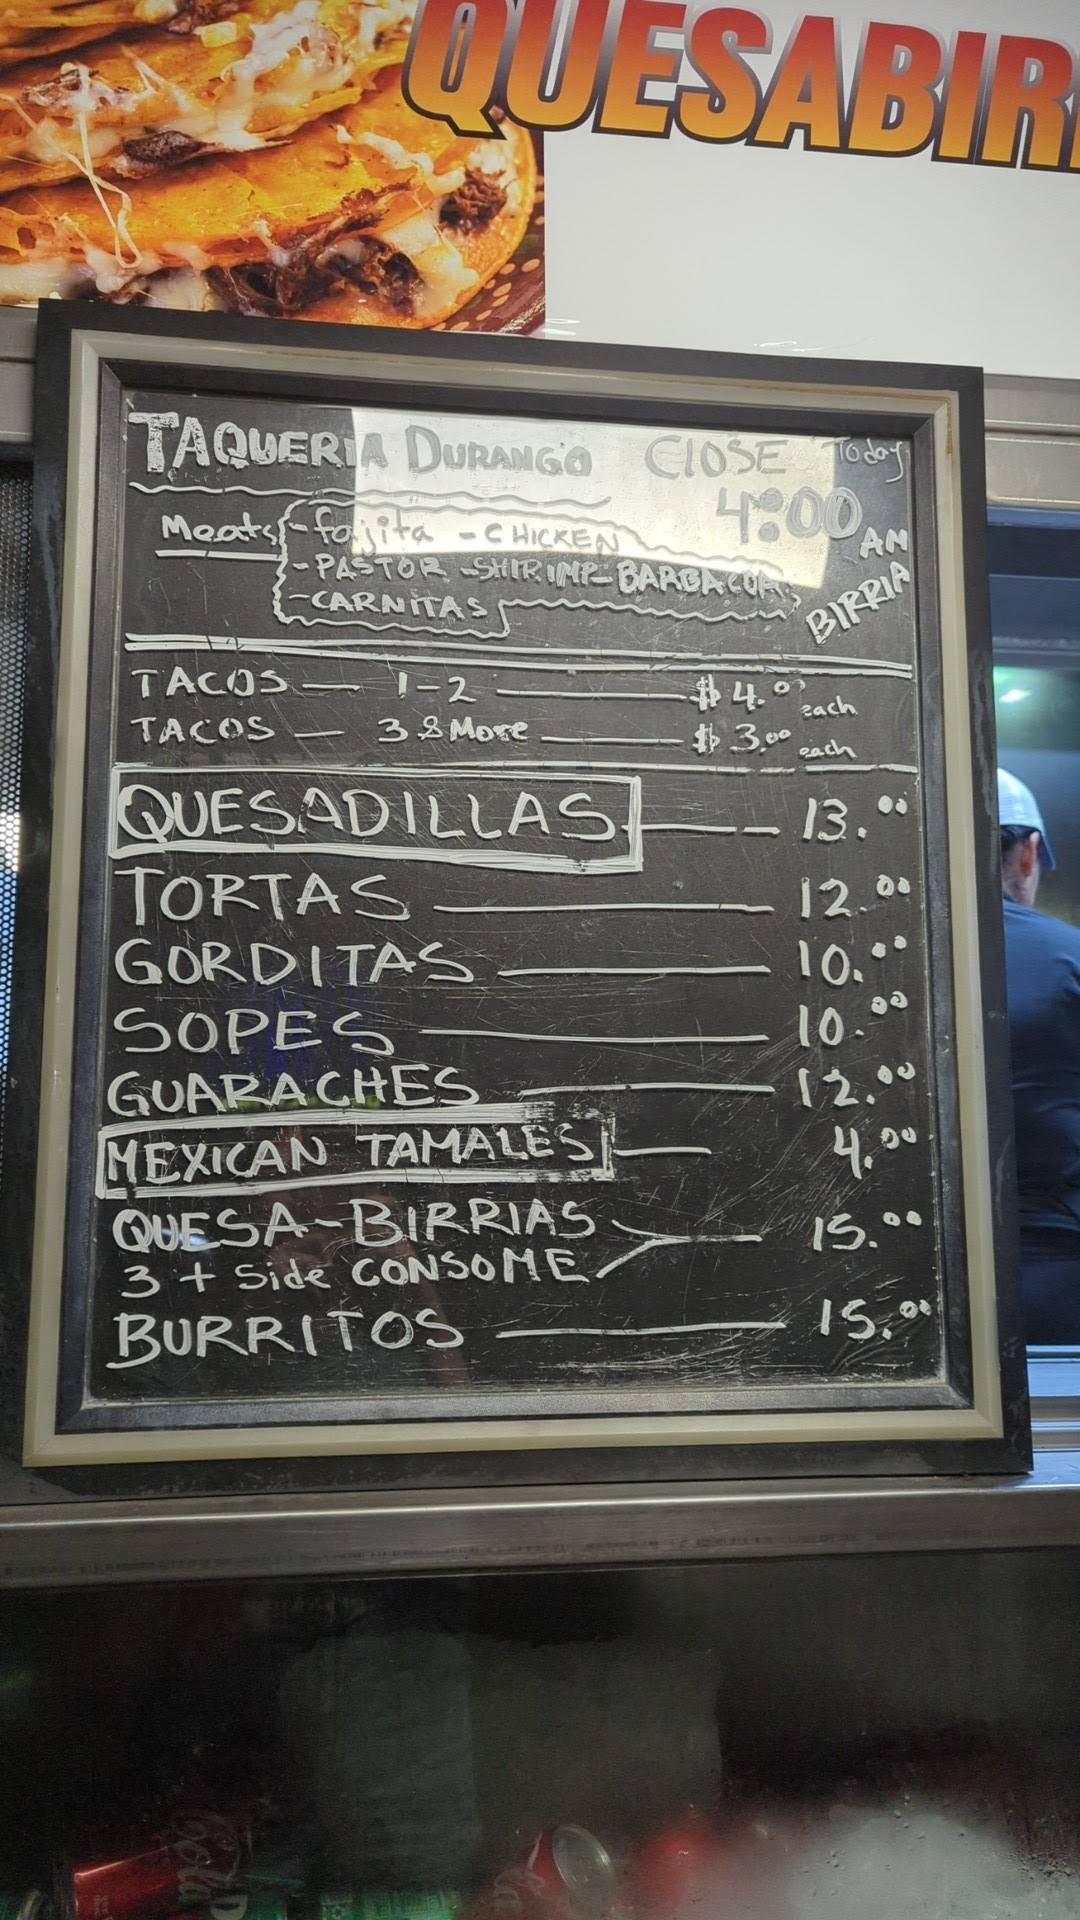 QUESABIR
TAQUERIA DURANGO CLOSE Today
4:00 AM
Meats -fajita -CHICKEN
-PASTOR -SHIRIMP- BARBACOA BIRRIA
-CARNITAS
TACOS — 1-2 — $4.00 each
TACOS — 3&More — $3.00 each
QUESADILLAS — 13.00
TORTAS — 12.00
GORDITAS — 10.00
SOPES — 10.00
GUARACHES — 12.00
MEXICAN TAMALES — 4.00
QUESA-BIRRIAS 15.00
3 + Side CONSOME
BURRITOS — 15.00